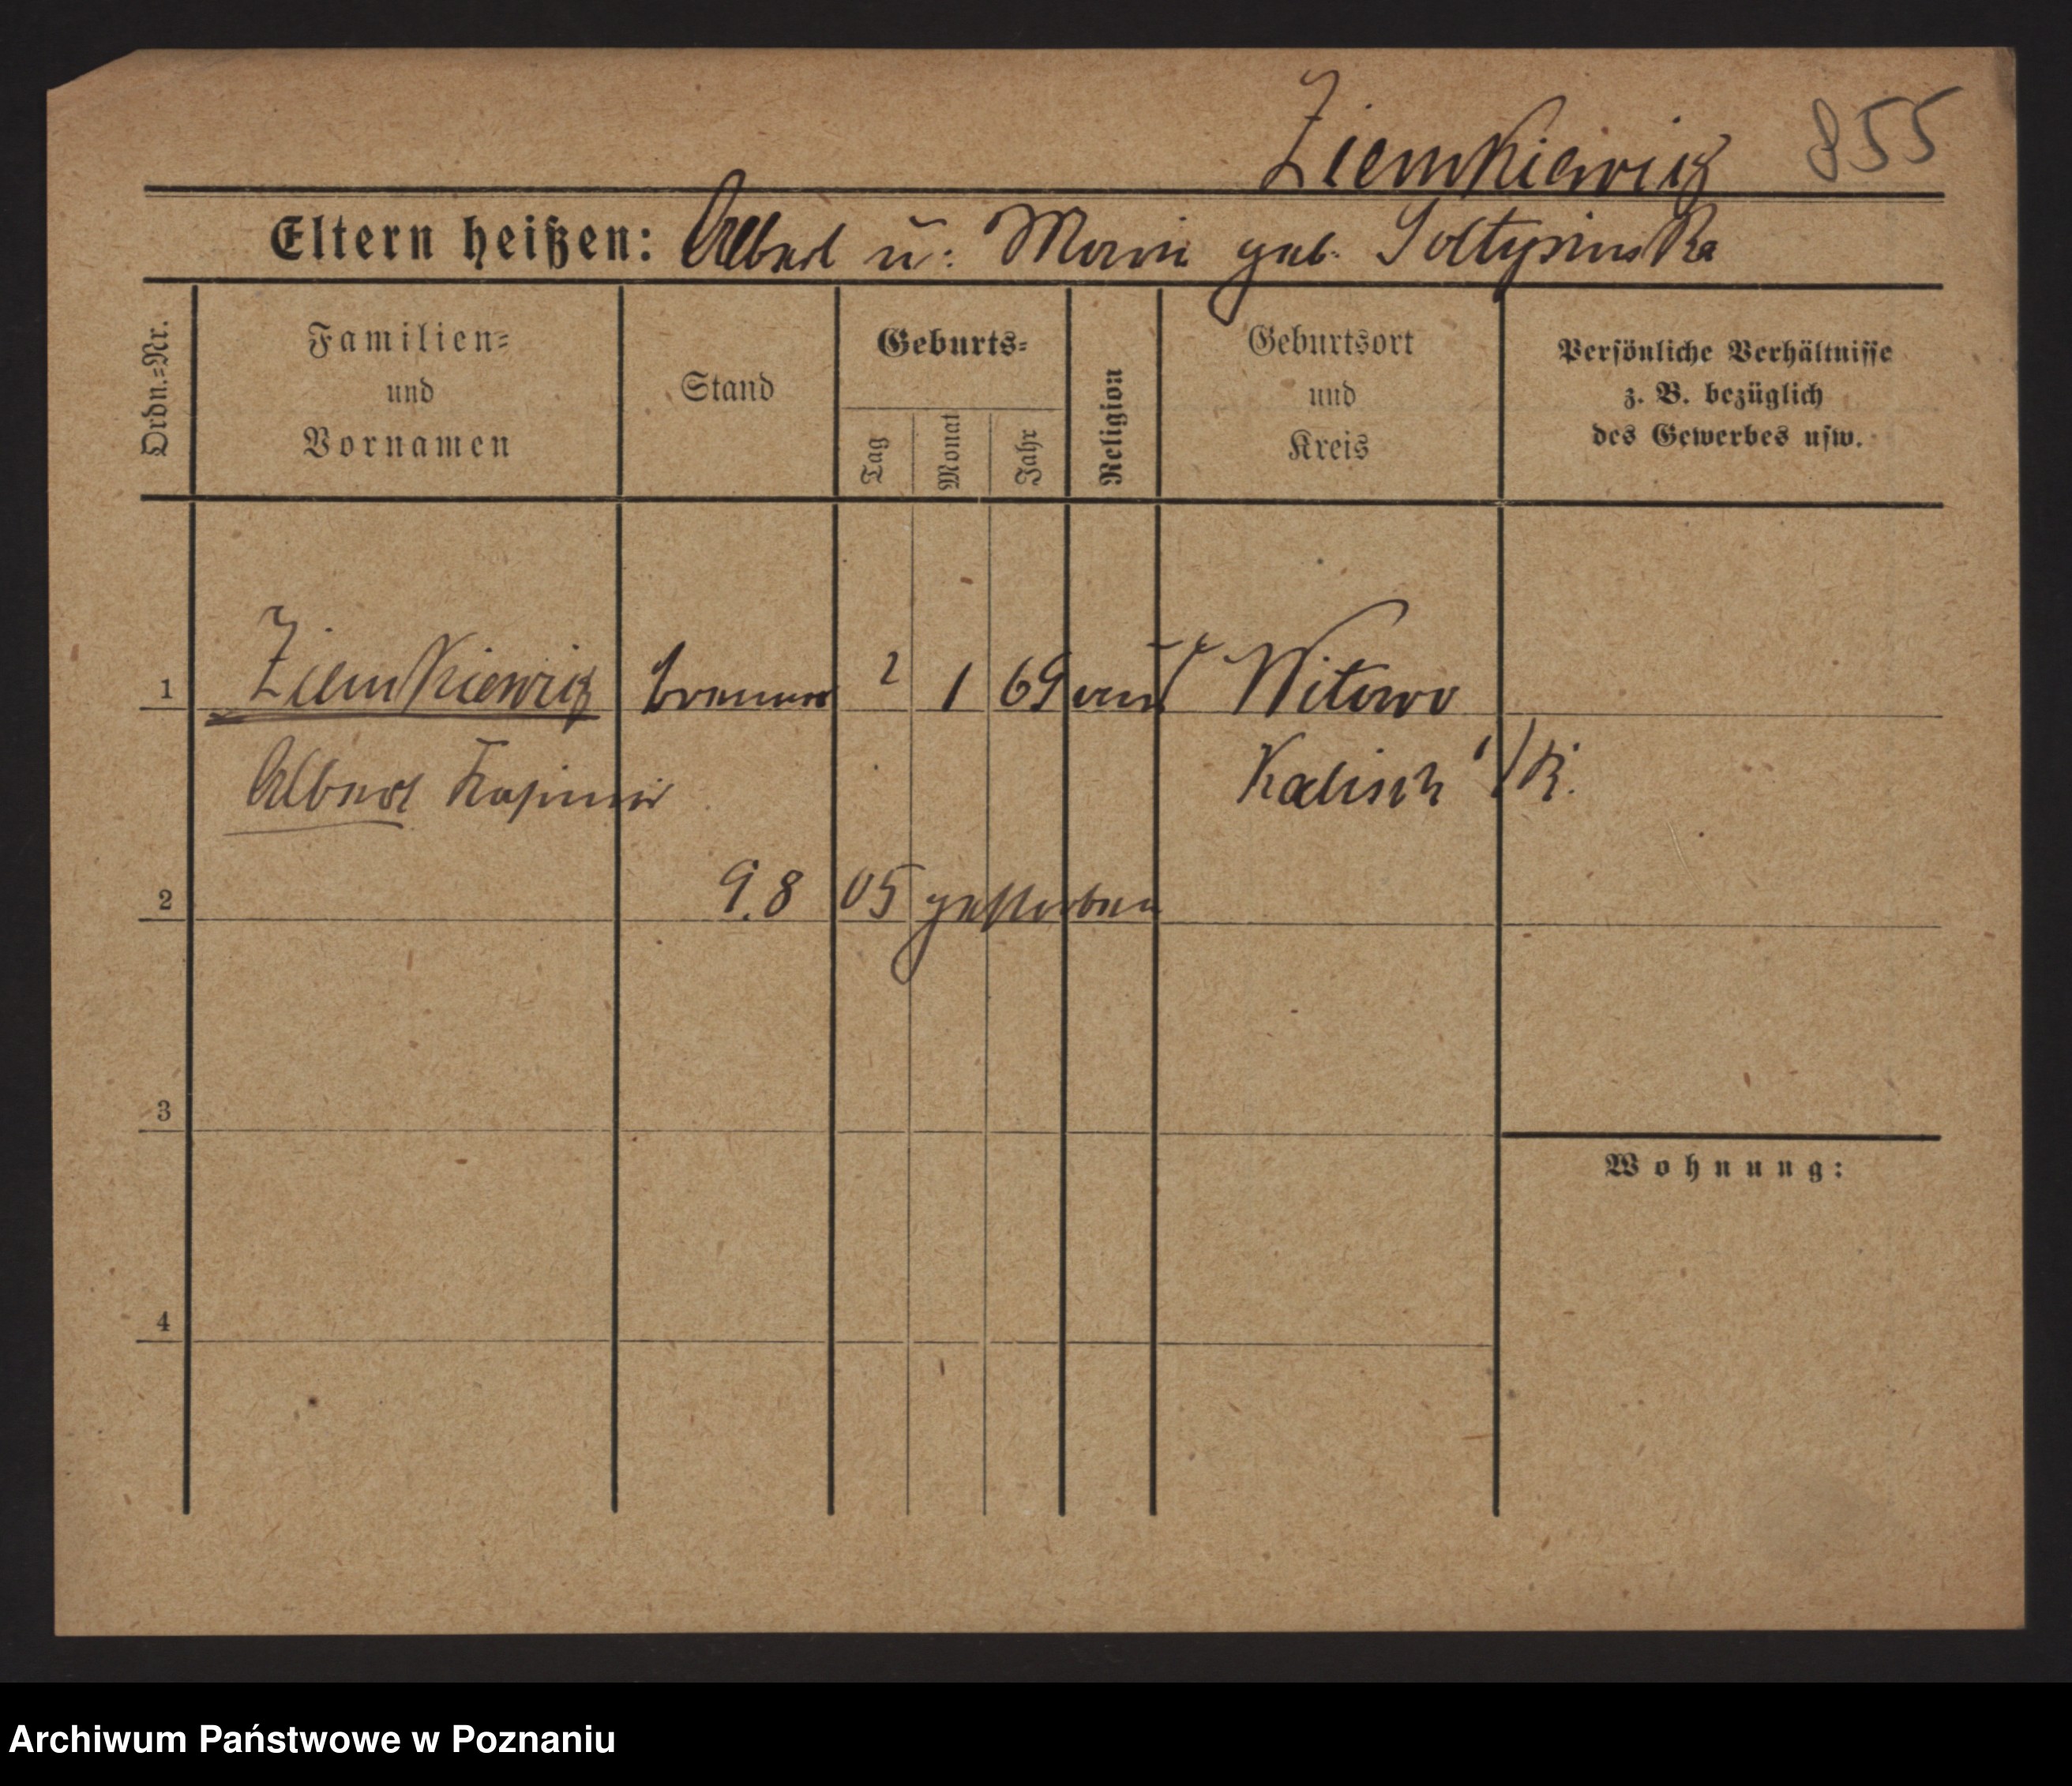 Ziemkiewicz 855
Eltern heißen: Albert u: Marie geb. Soltysinska
Ordn.=Nr.
Familien=
und
Vornamen
Stand
Geburts=
Tag
Monat
Jahr
Religion
Geburtsort
und
Kreis
Persönliche Verhältnisse
z. B. bezüglich
des Gewerbes usw.
1 Ziemkiewicz 2 1 69 Witowo
Albert Kasimir Kalisch /R.
2 9.8 05 gestorben
3
Wohnung:
4
Archiwum Państwowe w Poznaniu